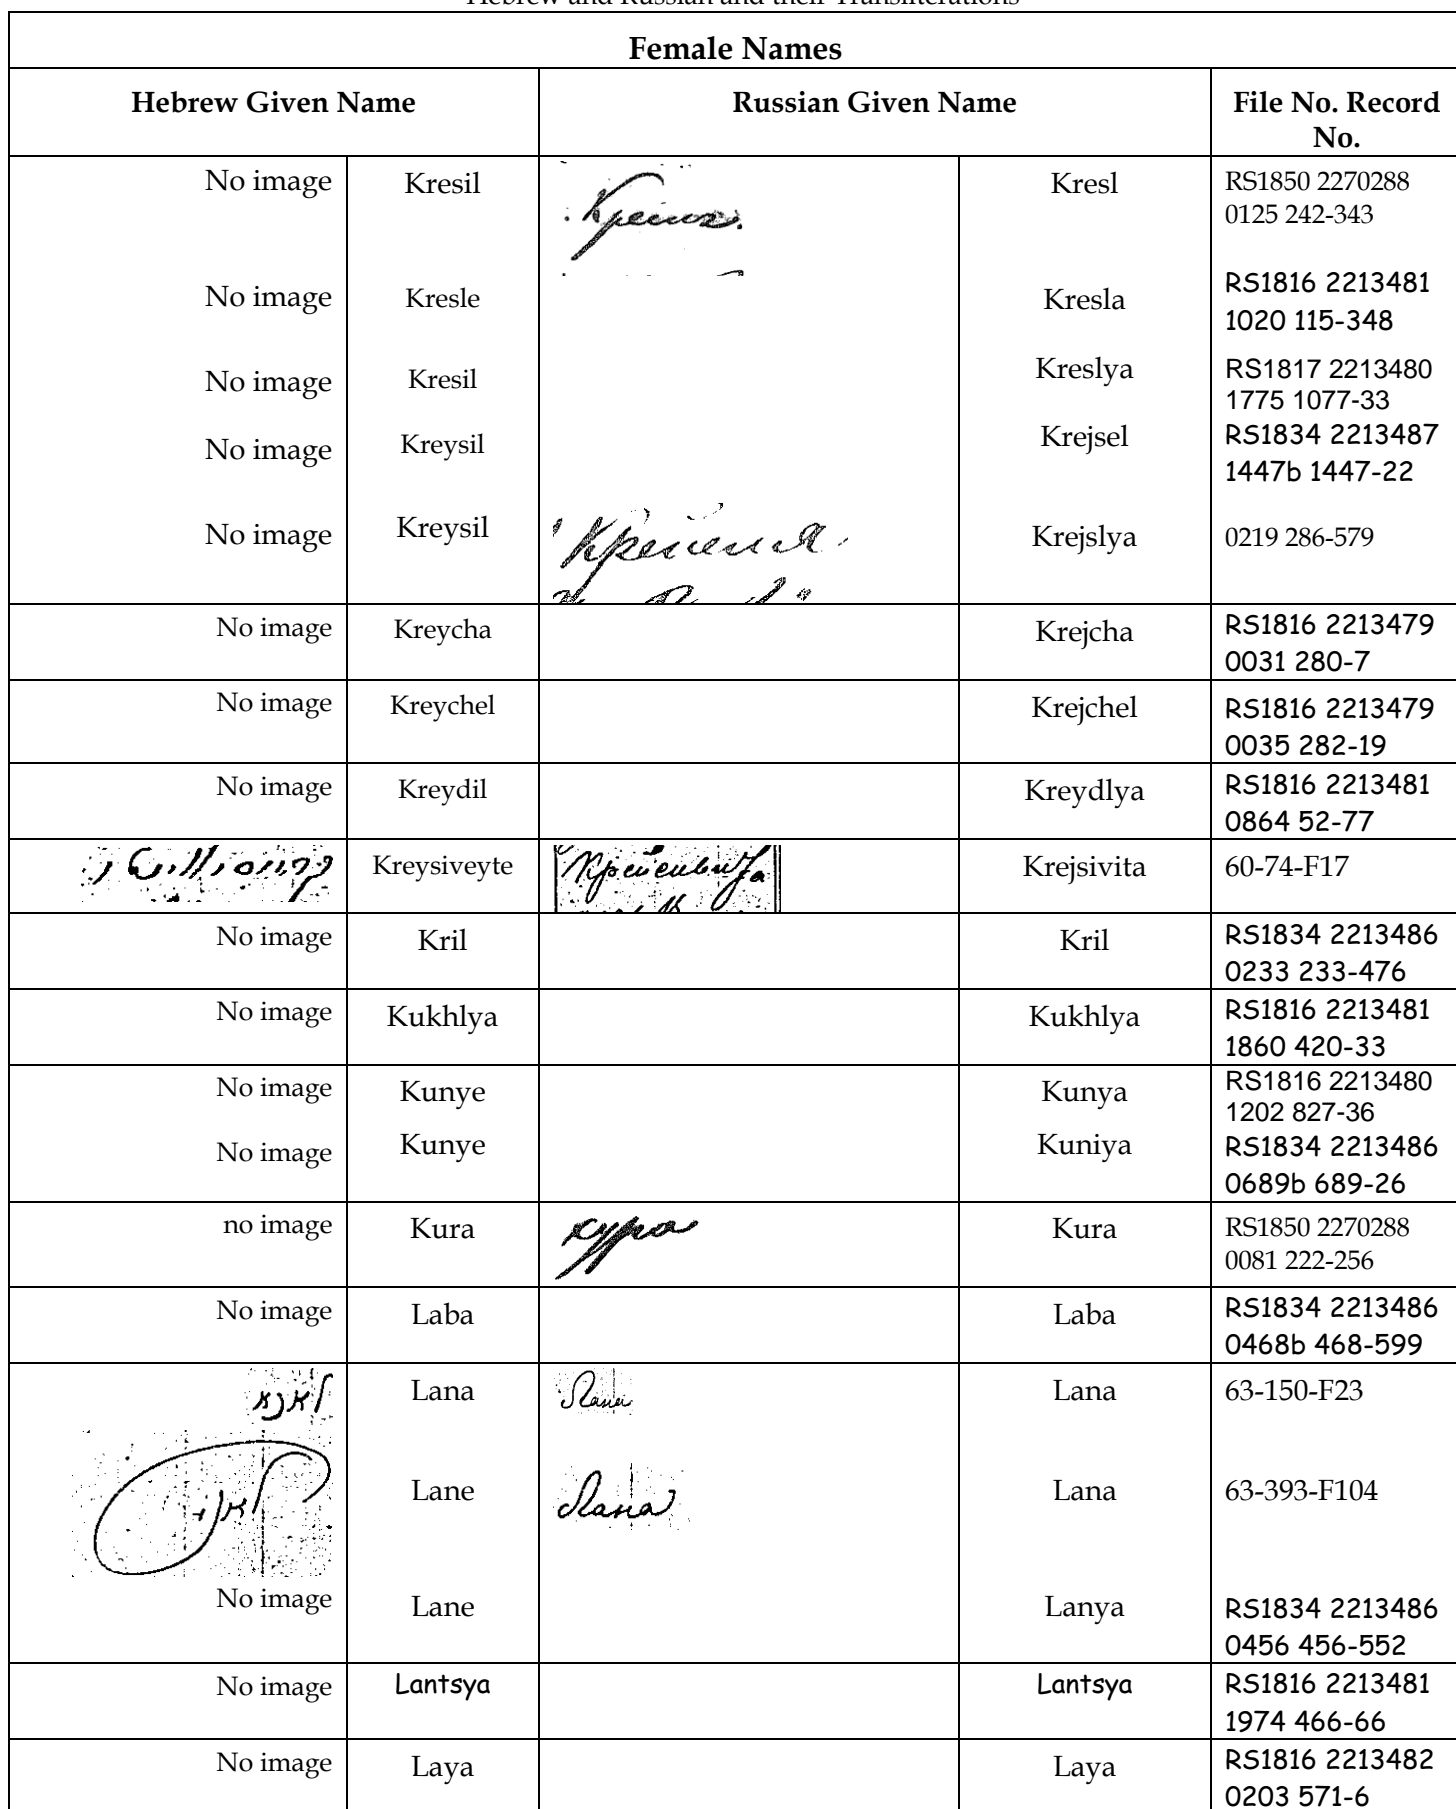 Hebrew and Russian and their Transliterations
Female Names
Hebrew Given Name Russian Given Name File No. Record No.
No image Kresil Kresl RS1850 2270288
0125 242-343
No image Kresle Kresla RS1816 2213481
1020 115-348
No image Kresil Kreslya RS1817 2213480
1775 1077-33
No image Kreysil Krejsel RS1834 2213487
1447b 1447-22
No image Kreysil Krejslya 0219 286-579
No image Kreycha Krejcha RS1816 2213479
0031 280-7
No image Kreychel Krejchel RS1816 2213479
0035 282-19
No image Kreydil Kreydlya RS1816 2213481
0864 52-77
Kreysiveyte Krejsivita 60-74-F17
No image Kril Kril RS1834 2213486
0233 233-476
No image Kukhlya Kukhlya RS1816 2213481
1860 420-33
No image Kunye Kunya RS1816 2213480
1202 827-36
No image Kunye Kuniya RS1834 2213486
0689b 689-26
no image Kura кура Kura RS1850 2270288
0081 222-256
No image Laba Laba RS1834 2213486
0468b 468-599
לאנא Lana Лана Lana 63-150-F23
Lane Лана Lana 63-393-F104
No image Lane Lanya RS1834 2213486
0456 456-552
No image Lantsya Lantsya RS1816 2213481
1974 466-66
No image Laya Laya RS1816 2213482
0203 571-6